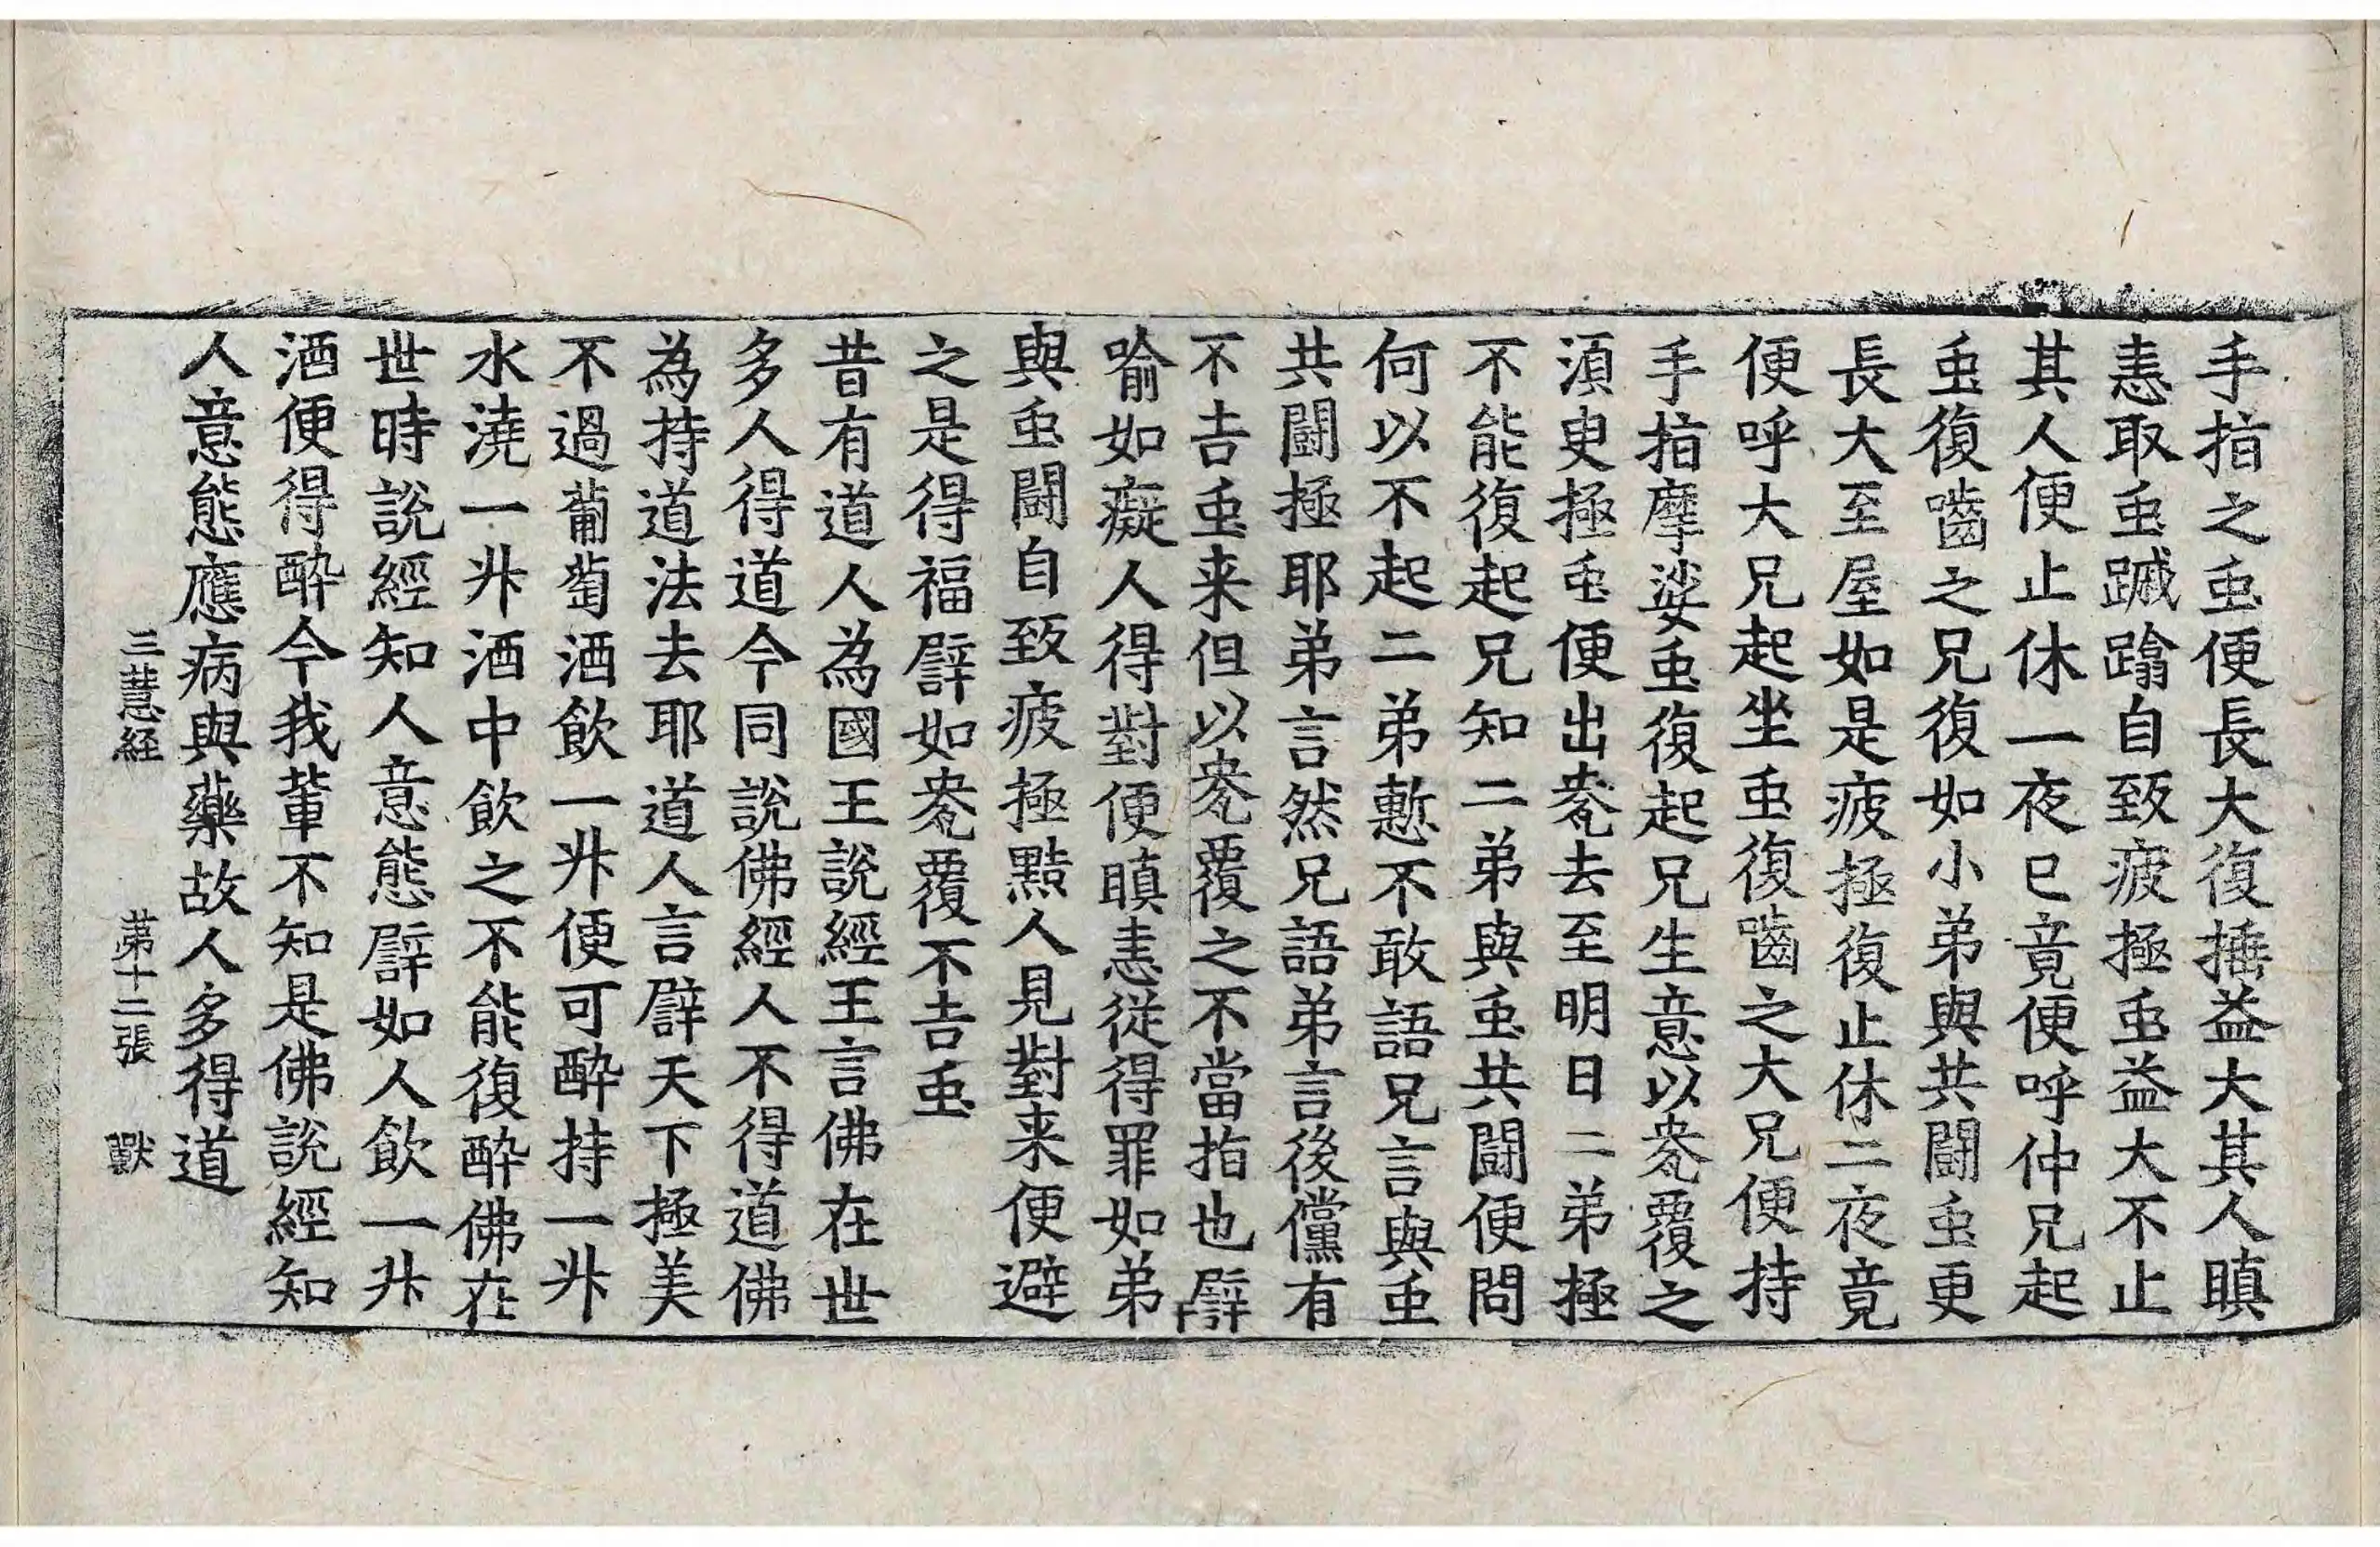 手指之䖝便長大復捶益大其人瞋
恚取䖝蹴蹹自致疲極䖝益大不止
其人便止休一夜已竟便呼仲兄起
䖝復嚙之兄復如小弟與共鬪䖝更
長大至屋如是疲極復止休二夜竟
便呼大兄起坐䖝復嚙之大兄便持
手指摩挲䖝復起兄生意以㼜覆之
須臾極䖝便出㼜去至明日二弟極
不能復起兄知二弟與䖝共鬪便問
何以不起二弟慙不敢語兄言與䖝
共鬪極耶弟言然兄語弟言後儻有
不吉䖝来但以㼜覆之不當指也譬
喻如癡人得對便瞋恚從得罪如弟
與䖝鬪自致疲極黠人見對来便避
之是得福譬如㼜覆不吉䖝
昔有道人為國王說經王言佛在世
多人得道今同說佛經人不得道佛
為持道法去耶道人言譬天下極美
不過葡萄酒飲一升便可醉持一升
水澆一升酒中飲之不能復醉佛在
世時說經知人意態譬如人飲一升
酒便得醉今我輩不知是佛說經知
人意態應病與藥故人多得道
三慧経 苐十二張 獸